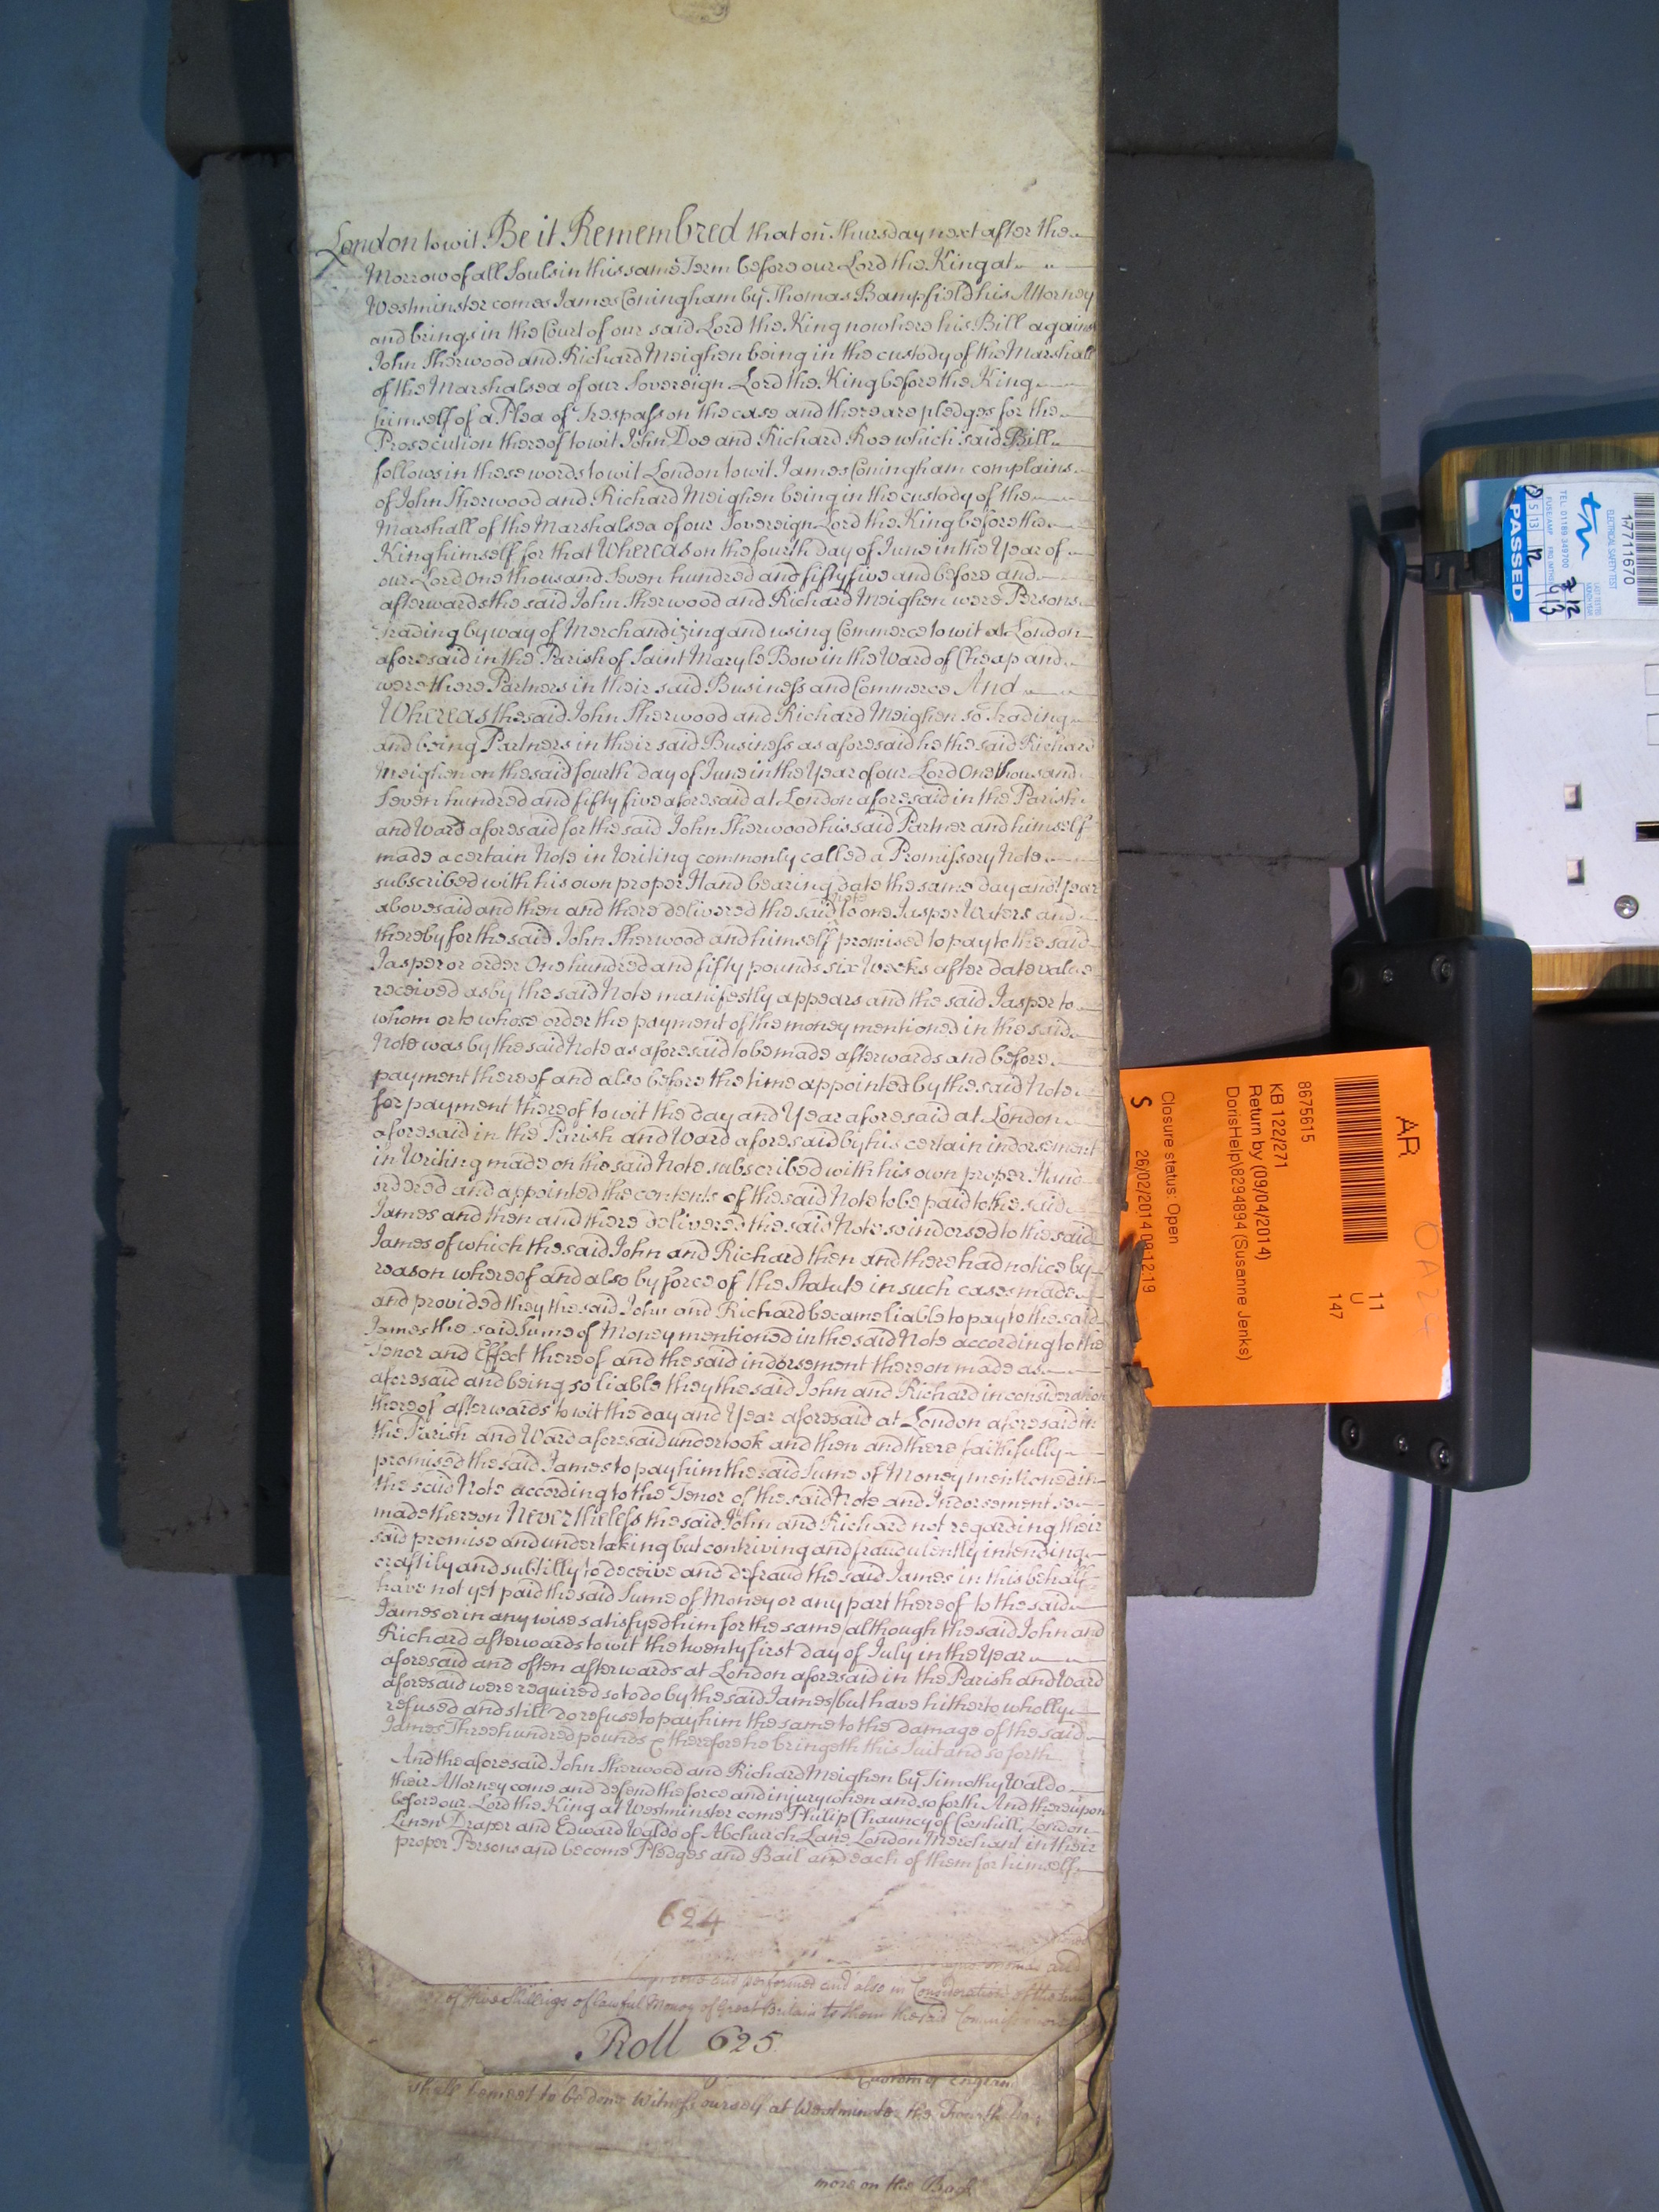 London to wit Be it Remembred that on Thursday next after the
Morrow of all Souls in this same Term before our Lord the King at
Westminster comes James Coningham by Thomas Bampfield his Attorney
and brings in the Court of our said Lord the King now here his Bill against
John Sherwood and Richard Meighen being in the custody of the Marshall
of the Marshalsea of our Sovereign Lord the King before the King
himself of a Plea of Trespass on the case and there are pledges for the
Prosecution thereof to wit John Doe and Richard Roe which said Bill
follows in these words to wit London to wit James Coningham complains
of John Sherwood and Richard Meighen being in the custody of the
Marshall of the Marshalsea of our Sovereign Lord the King before the
King himself for that Whereas on the fourth day of June in the Year of
our Lord One thousand Seven hundred and fifty five and before and
afterwards the said John Sherwood and Richard Meighen were Persons
Trading by way of Merchandizing and using Commerce to wit at London
aforesaid in the Parish of Saint Mary le Bow in the Ward of Cheap and
were there Partners in their said Business and Commerce And
Whereas the said John Sherwood and Richard Meighen so Trading
and being Partners in their said Business as aforesaid he the said Richard
Meighen on the said fourth day of June in the Year of our Lord One thousand
Seven hundred and fifty five aforesaid at London aforesaid in the Parish
and Ward aforesaid for the said John Sherwood his said Partner and himself
made a certain Note in Writing commonly called a Promissory Note
subscribed with his own proper Hand bearing date the same day and Year
abovesaid and then and there delivered the said Note to one Jasper Waters and
thereby for the said John Sherwood and himself promised to pay to the said
Jasper or order One hundred and fifty pounds six Weeks after date value
received as by the said Note manifestly appears and the said Jasper to
whom or to whose order the payment of the money mentioned in the said
Note was by the said Note as aforesaid to be made afterwards and before
payment thereof and also before the time appointed by the said Note
for payment thereof to wit the day and Year aforesaid at London
aforesaid in the Parish and Ward aforesaid by his certain indorsement
in Writing made on the said Note subscribed with his own proper Hand
ordered and appointed the contents of the said Note to be paid to the said
James and then and there delivered the said Note so indorsed to the said
James of which the said John and Richard then and there had notice by
reason whereof and also by force of the Statute in such case made
and provided they the said John and Richard became liable to pay to the said
James the said Sume of Money mentioned in the said Note according to the
Tenor and Effect thereof and the said indorsement thereon made as
aforesaid and being so liable they the said John and Richard in consideration
thereof afterwards to wit the day and Year aforesaid at London aforesaid in
the Parish and Ward aforesaid undertook and then and there faithfully
promised the said James to pay him the said Sume of Money mentioned in
the said Note according to the Tenor of the said Note and Indorsement so
made thereon Nevertheless the said John and Richard not regarding their
said promise and undertaking but contriving and fraudulently intending
craftily and subtilly to deceive and defraud the said James in this behalf
have not yet paid the said Sume of Money or any part thereof to the said
James or in any wise satisfyed him for the same (although the said John and
Richard afterwards to wit the twenty first day of July in the Year
aforesaid and often afterwards at London aforesaid in the Parish and Ward
aforesaid were required so to do by the said James) but have hitherto wholly
refused and still do refuse to pay him the same to the damage of the said
James Three hundred pounds & therefore he bringeth this Suit and so forth
And the aforesaid John Sherwood and Richard Meighen by Timothy Waldo
their Attorney come and defend the force and injury when and so forth And thereupon
before our Lord the King at Westminster come Philip Chauncy of Cornhill London
Linen Draper and Edward Waldo of Abchurch Lane London Merchant in their
proper Persons and become Pledges and Bail and each of them for himself
624
and performed and also in Consideration of the
of Five Shillings of lawful Money of Great Britain to them the said Commissioners
Roll 625
shall be meet to be done Witness ourself at Westminster the Fourth
more on the Back
AR
11
U
147
8675615
KB 122/271
Return by (09/04/2014)
DorisHelp\8294894 (Susanne Jenks)
Closure status: Open
S
26/02/2014 09:12:19
OA24
17711670
ELECTRICAL SAFETY TEST
TEL: 01189 349700
PASSED